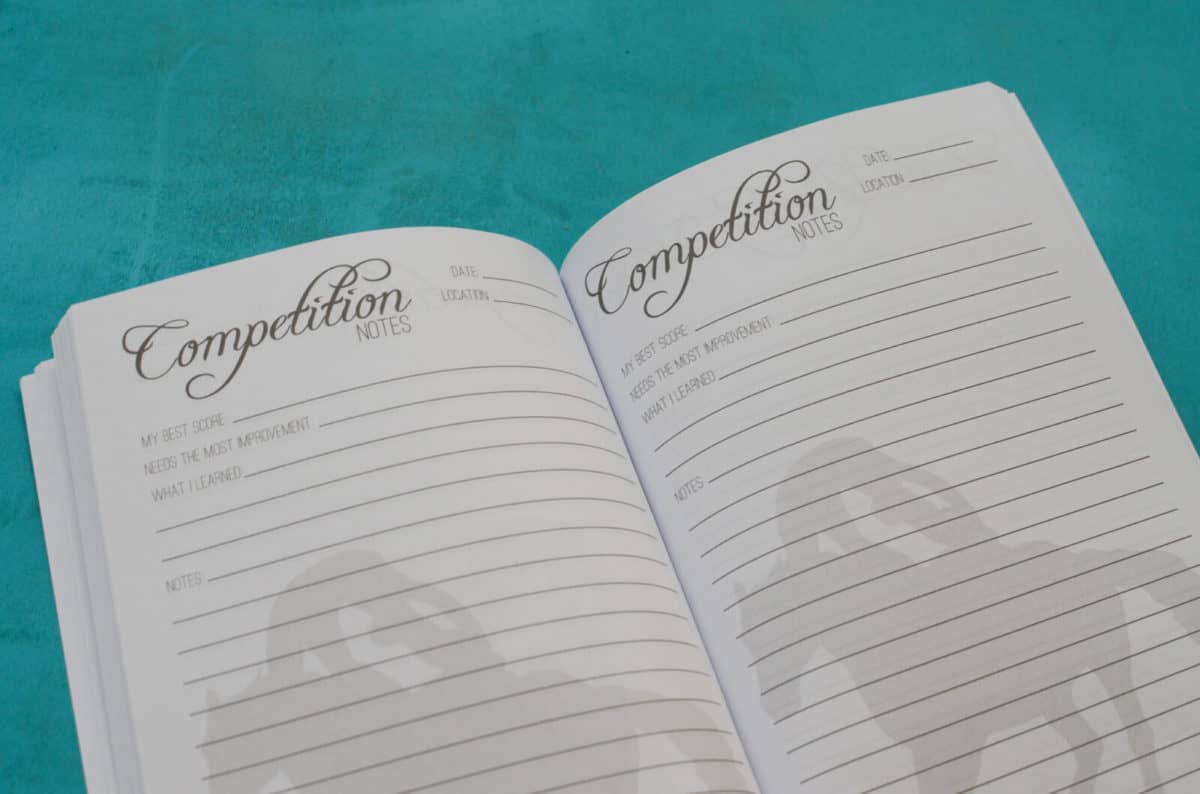 Competition
NOTES
DATE:
LOCATION:
MY BEST SCORE:
NEEDS THE MOST IMPROVEMENT:
WHAT I LEARNED:
NOTES:
Competition
NOTES
DATE:
LOCATION:
MY BEST SCORE:
NEEDS THE MOST IMPROVEMENT:
WHAT I LEARNED:
NOTES: